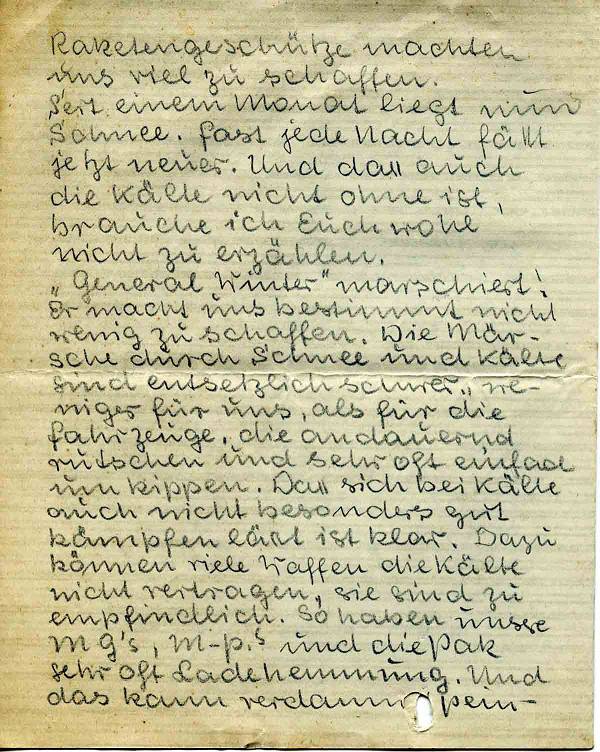 Raketengeschütze machten
uns viel zu schaffen.
Seit einem Monat liegt nun
Schnee. Fast jede Nacht fällt
jetzt neuer. Und dass auch
die Kälte nicht ohne ist,
brauche ich Euch wohl
nicht zu erzählen.
„General Winter" marschiert!
Er macht uns bestimmt nicht
wenig zu schaffen. Die Mär-
sche durch Schnee und Kälte
sind entsetzlich schwer, we-
niger für uns, als für die
Fahrzeuge, die andauernd
rutschen und sehr oft einfach
umkippen. Dass sich bei Kälte
auch nicht besonders gut
kämpfen lässt ist klar. Dazu
können viele Waffen die Kälte
nicht vertragen, sie sind zu
empfindlich. So haben unsere
MG's, M-p.s und die Pak
sehr oft Ladehemmung. Und
das kann verdammt pein-